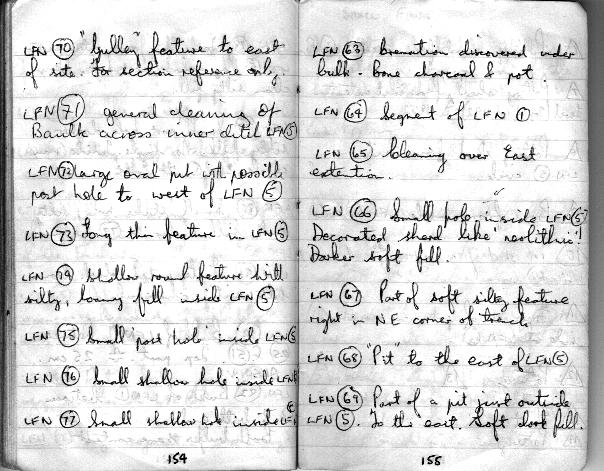 LFN 70 "Gulley" feature to east
of site. For section reference only.
LFN 71 general cleaning of
Baulk across inner ditch LFN 5
LFN 72 large oval pit with possible
post hole to west of LFN 5
LFN 73 Long thin feature in LFN 5
LFN 74 Shallow round feature with
silty, loamy fill inside LFN 5
LFN 75 Small 'post hole' inside LFN 5
LFN 76 Small shallow hole inside LFN
LFN 77 Small shallow hole inside LFN
154
LFN 63 Cremation discovered under
bulk - Bone charcoal & pot.
LFN 64 Segment of LFN 1
LFN 65 Cleaning over East
extention.
LFN 66 Small hole inside LFN 5
Decorated sherd like 'neolithic'!
Darker soft fill.
LFN 67 Part of soft silty feature
right in NE corner of trench
LFN 68 "Pit" to the east of LFN 5
LFN 69 Part of a pit just outside
LFN 5. To the east. Soft dark fill.
155